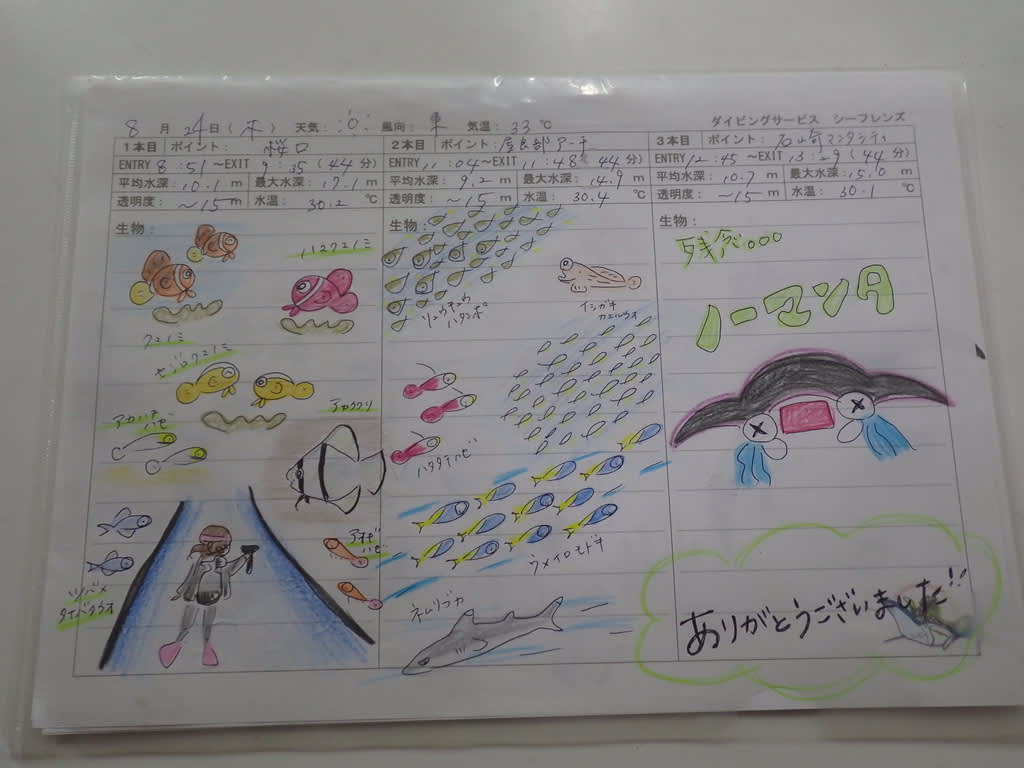 ダイビングサービス シーフレンズ
8月24日(木) 天気: 風向:東 気温:33℃
1本目 ポイント:桜口
ENTRY 8:51～EXIT 9:35(44分)
平均水深:10.1m 最大水深:17.1m
透明度:～15m 水温:30.2℃
生物:
ハマクマノミ
クマノミ
セジロクマノミ
アカククリ
アカハチハゼ
アオギハゼ
ツバメ
タナバタウオ
2本目 ポイント:屋良部アーチ
ENTRY 11:04～EXIT 11:48(44分)
平均水深:9.2m 最大水深:14.9m
透明度:～15m 水温:30.4℃
生物:
リュウキュウ
ハタンポ
イシガキ
カエルウオ
ハタタテハゼ
ウメイロモドキ
ネムリブカ
3本目 ポイント:石崎マンタシティ
ENTRY 12:45～EXIT 13:29(44分)
平均水深:10.7m 最大水深:15.0m
透明度:～15m 水温:30.1℃
生物:
残念。。。
ノーマンタ
ありがとうございました!!